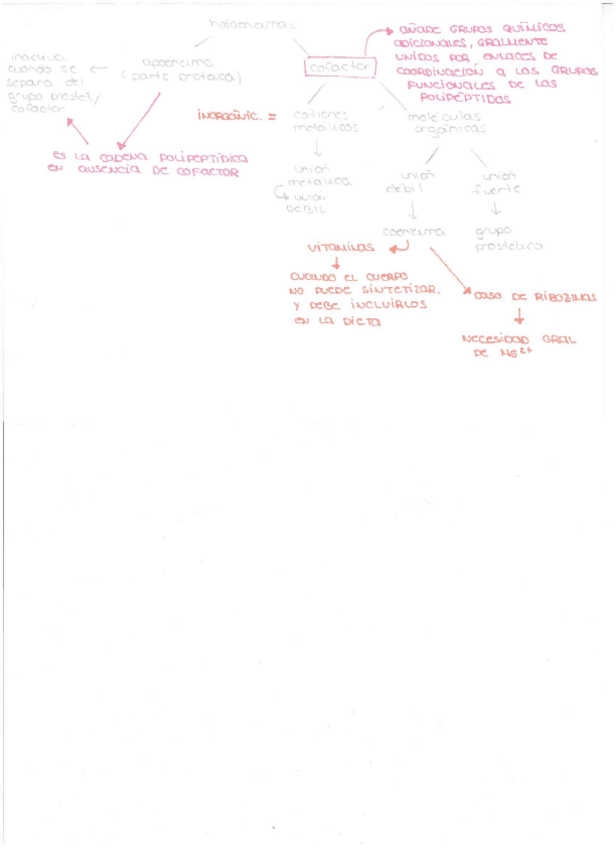 holoenzimas
AÑADE GRUPOS QUÍMICOS
ADICIONALES, GRALMENTE
UNIDOS POR ENLACES DE
COORDINACIÓN A LOS GRUPOS
FUNCIONALES DE LOS
POLIPÉPTIDOS
inactiva
cuando se
separa del
grupo prostet/
cofactor
apoenzima
(parte proteica)
cofactor
ES LA CADENA POLIPEPTÍDICA
EN AUSENCIA DE COFACTOR
INORGÁNIC. =
cationes
metálicos
moléculas
orgánicas
unión
metálica
UNIÓN
DÉBIL
unión
débil
unión
fuerte
coenzima
grupo
prostético
VITAMINAS
CUANDO EL CUERPO
NO PUEDE SINTETIZAR.
Y DEBE INCLUIRLOS
EN LA DIETA
CASO DE RIBOZIMAS
NECESIDAD GRAL
DE MG²⁺